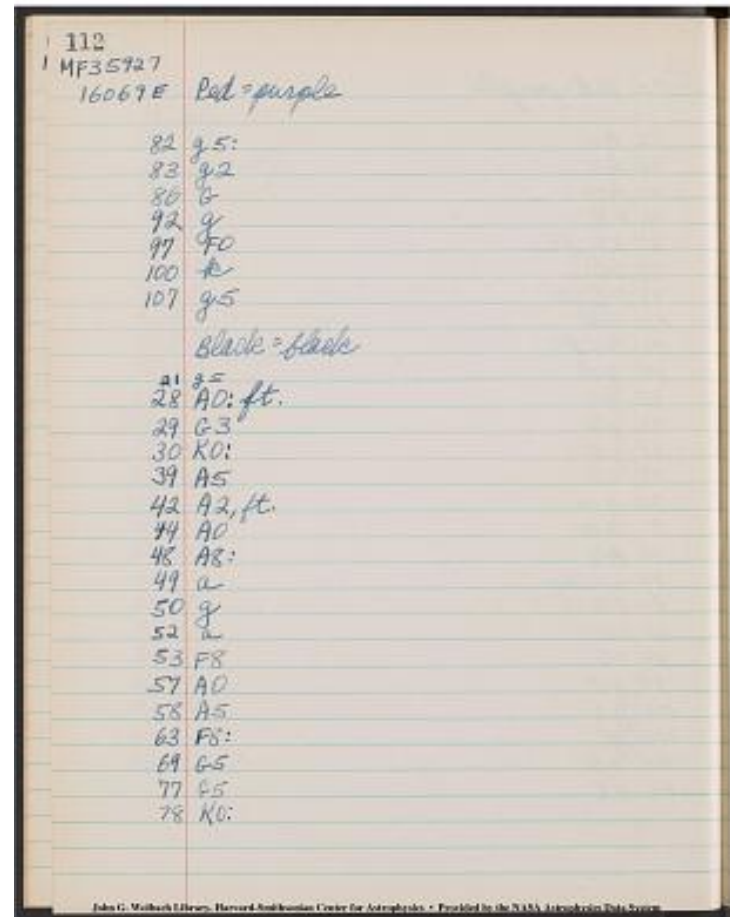 112
MF35927
16069E Red = purple
82 g5:
83 g2
86 G
92 g
97 F0
100 k
107 g5
Black = black
21 g5
28 A0: ft.
29 G3
30 K0:
39 A5
42 A2, ft.
44 A0
48 A8:
49 a
50 g
52 a
53 F8
57 A0
58 A5
63 F8:
69 G5
77 G5
78 K0:
John G. Wolbach Library, Harvard-Smithsonian Center for Astrophysics • Provided by the NASA Astrophysics Data System